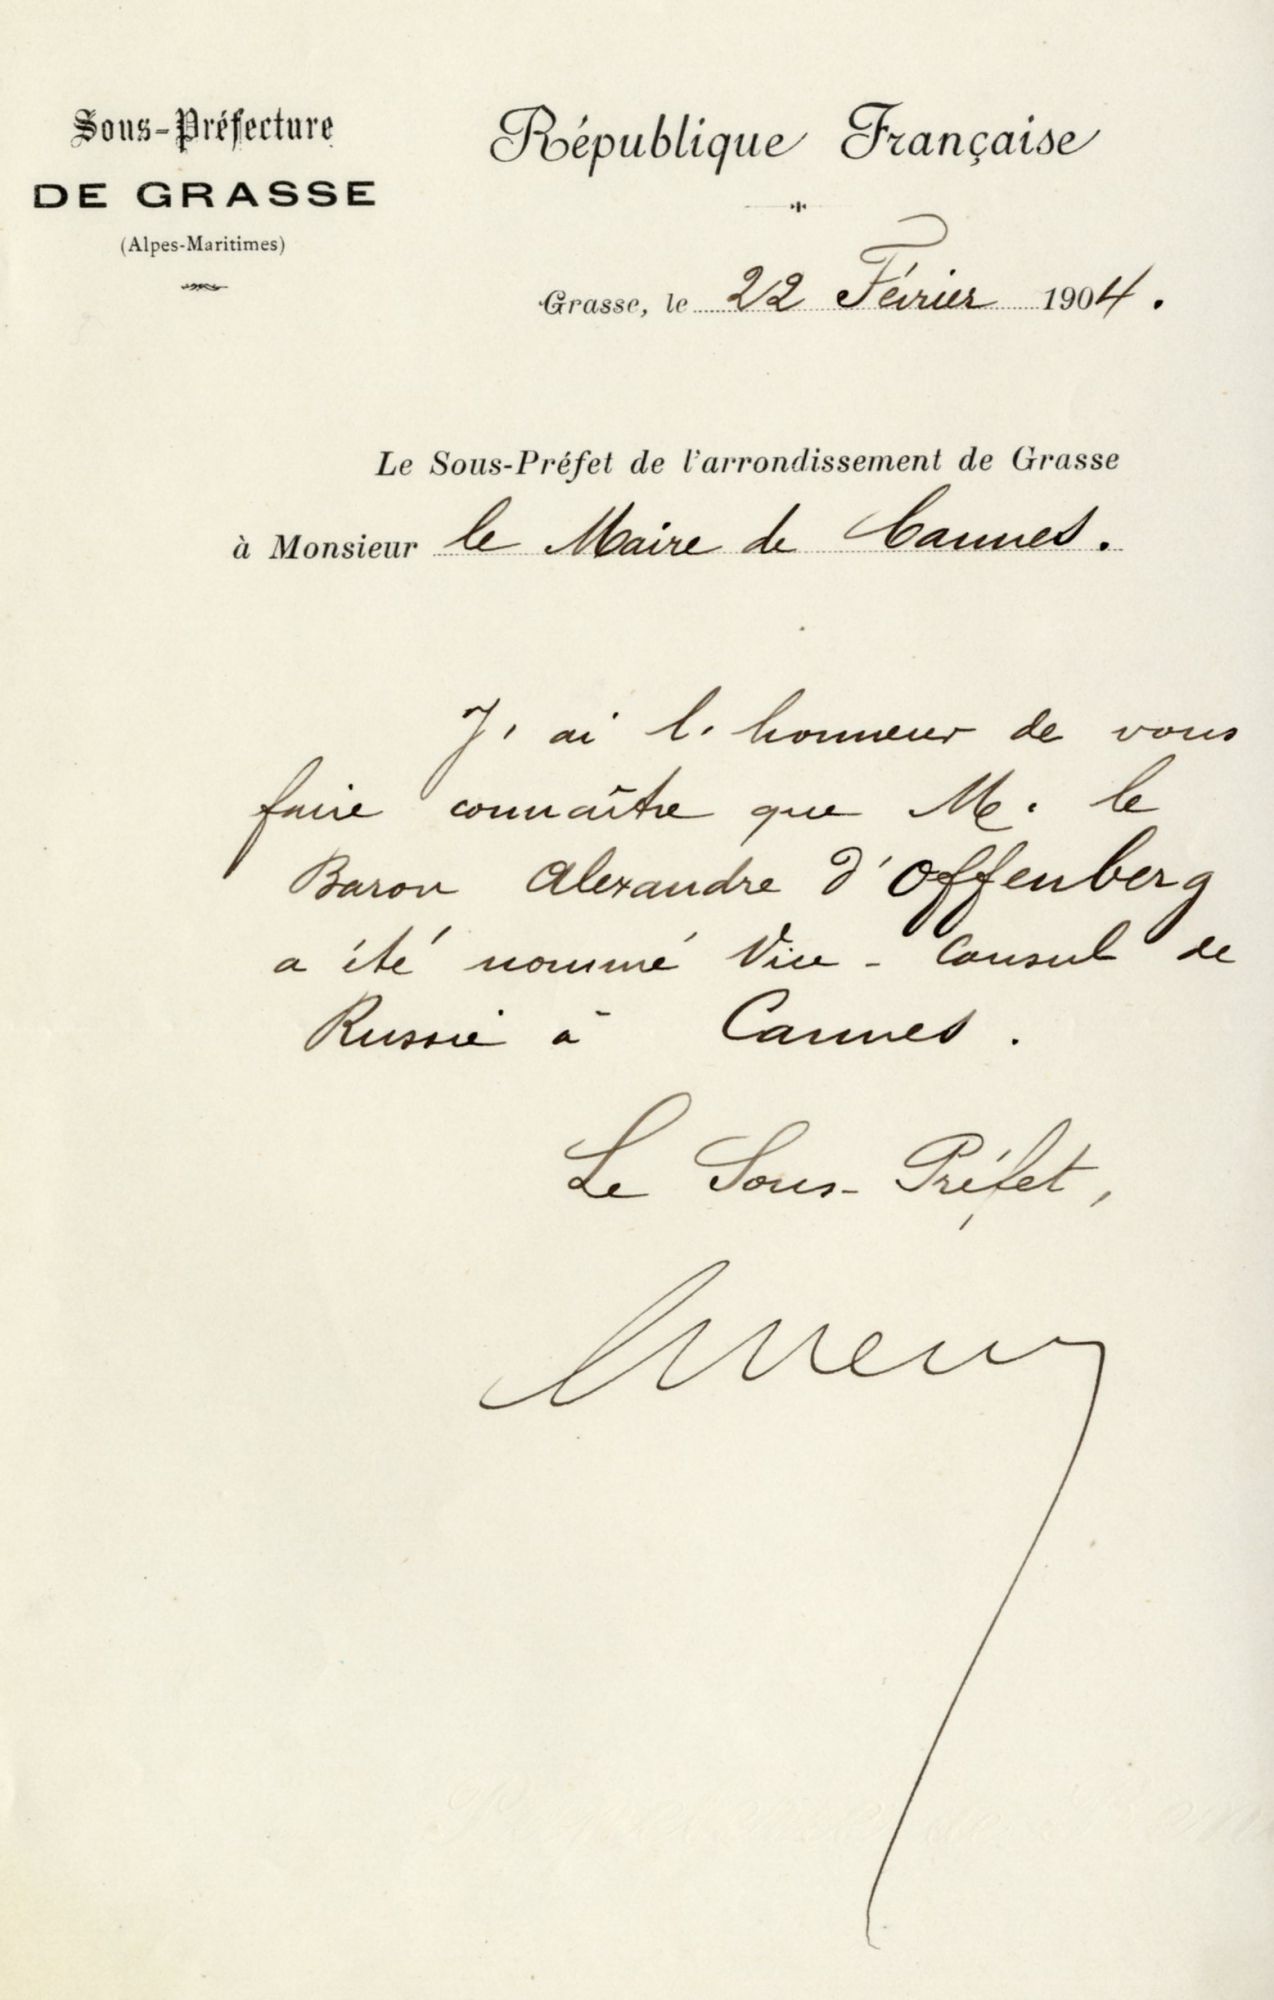 Sous-Préfecture
DE GRASSE
(Alpes-Maritimes)
République Française
Grasse, le 22 Février 1904.
Le Sous-Préfet de l'arrondissement de Grasse
à Monsieur le Maire de Cannes.
J'ai l'honneur de vous
faire connaître que M. le
Baron Alexandre d'Offenberg
a été nommé Vice-Consul de
Russie à Cannes.
Le Sous-Préfet,